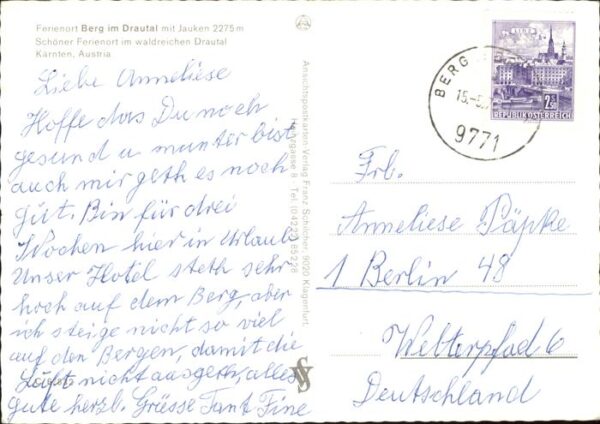 Ferienort Berg im Drautal mit Jauken 2275 m
Schöner Ferienort im waldreichen Drautal
Kärnten, Austria
Liebe Anneliese
Hoffe das Du noch
gesund u munter bist
auch mir geth es noch
gut. Bin für drei
Wochen hier in Urlaub
Unser Hotel steth sehr
hoch auf dem Berg, aber
ich steige nicht so viel
auf den Bergen, damit die
Luft nicht ausgeth, alles
gute herzl. Grüsse Tant Fine
Ansichtspostkarten-Verlag Franz Schilcher, 9020 Klagenfurt,
LINZ
2.50
REPUBLIK ÖSTERREICH
BERG
15.-5.
9771
Frl.
Anneliese Päpke
1 Berlin 48
Welterpfad 6
Deutschland